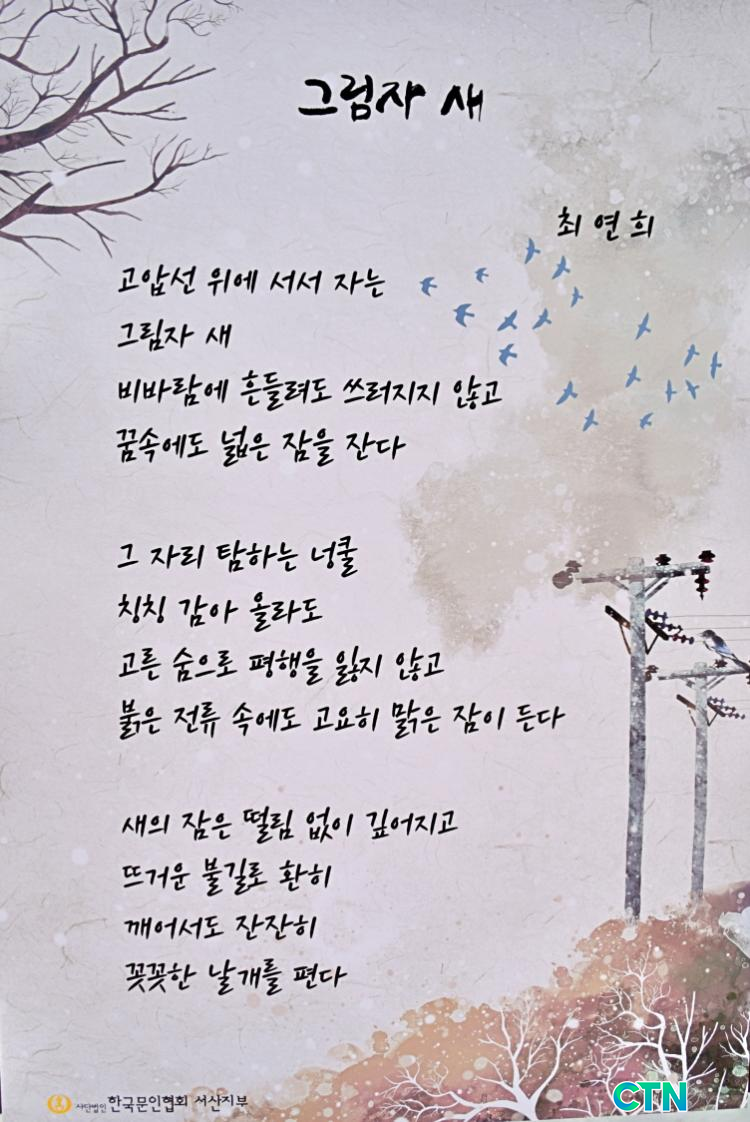 그림자 새
최연희
고압선 위에 서서 자는
그림자 새
비바람에 흔들려도 쓰러지지 않고
꿈속에도 넓은 잠을 잔다
그 자리 탐하는 넝쿨
칭칭 감아 올라도
고른 숨으로 평행을 잃지 않고
붉은 전류 속에도 고요히 맑은 잠이 든다
새의 잠은 떨림 없이 깊어지고
뜨거운 불길로 환히
깨어서도 잔잔히
꽂꽂한 날개를 편다
사단법인 한국문인협회 서산지부
CTN